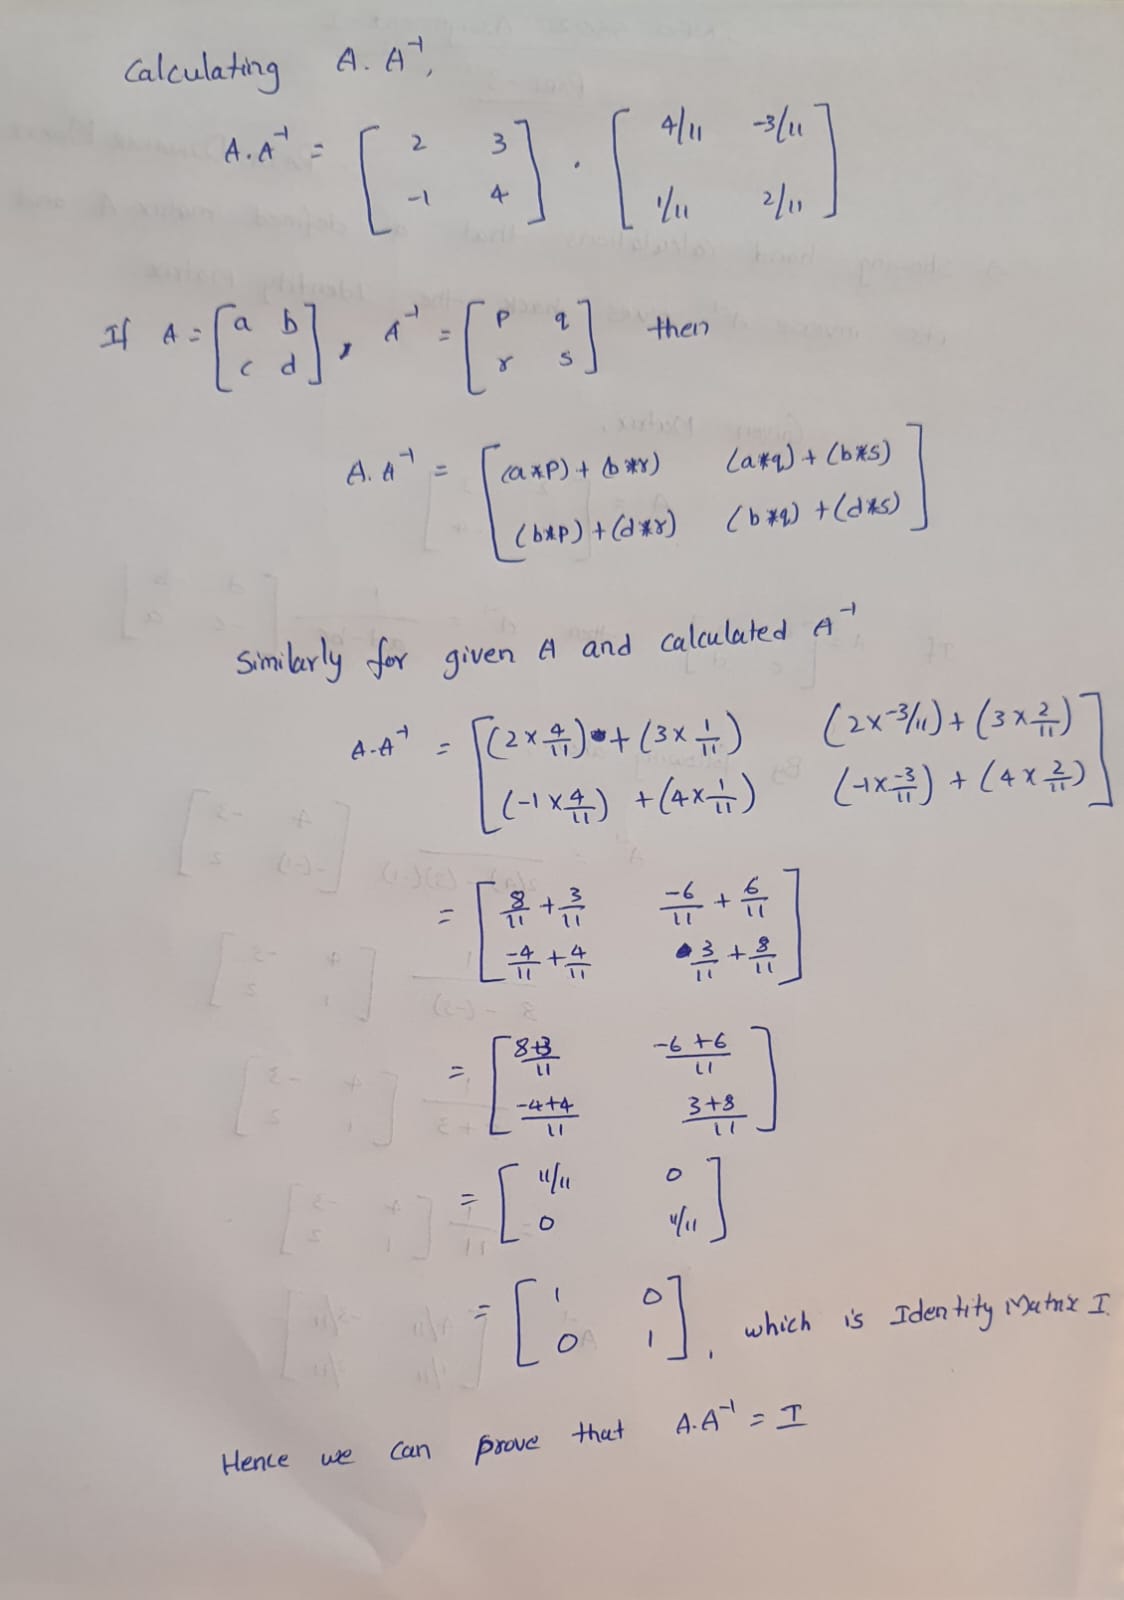 Calculating A. A⁻¹,
A.A⁻¹ = [ 2 3 ] . [ 4/11 -3/11 ]
[ -1 4 ] [ 1/11 2/11 ]
If A = [ a b ] , A⁻¹ = [ p q ] then
[ c d ] [ r s ]
A. A⁻¹ = [ (a*p) + (b*r) (a*q) + (b*s) ]
[ (b*p) + (d*r) (b*q) + (d*s) ]
Similarly for given A and calculated A⁻¹
A.A⁻¹ = [ (2 x 4/11) + (3 x 1/11) (2 x -3/11) + (3 x 2/11) ]
[ (-1 x 4/11) + (4 x 1/11) (-1 x -3/11) + (4 x 2/11) ]
= [ 8/11 + 3/11 -6/11 + 6/11 ]
[ -4/11 + 4/11 3/11 + 8/11 ]
= [ 8+3/11 -6+6/11 ]
[ -4+4/11 3+8/11 ]
= [ 11/11 0 ]
[ 0 11/11 ]
= [ 1 0 ]
[ 0 1 ] , which is Identity Matrix I.
Hence we can prove that A.A⁻¹ = I